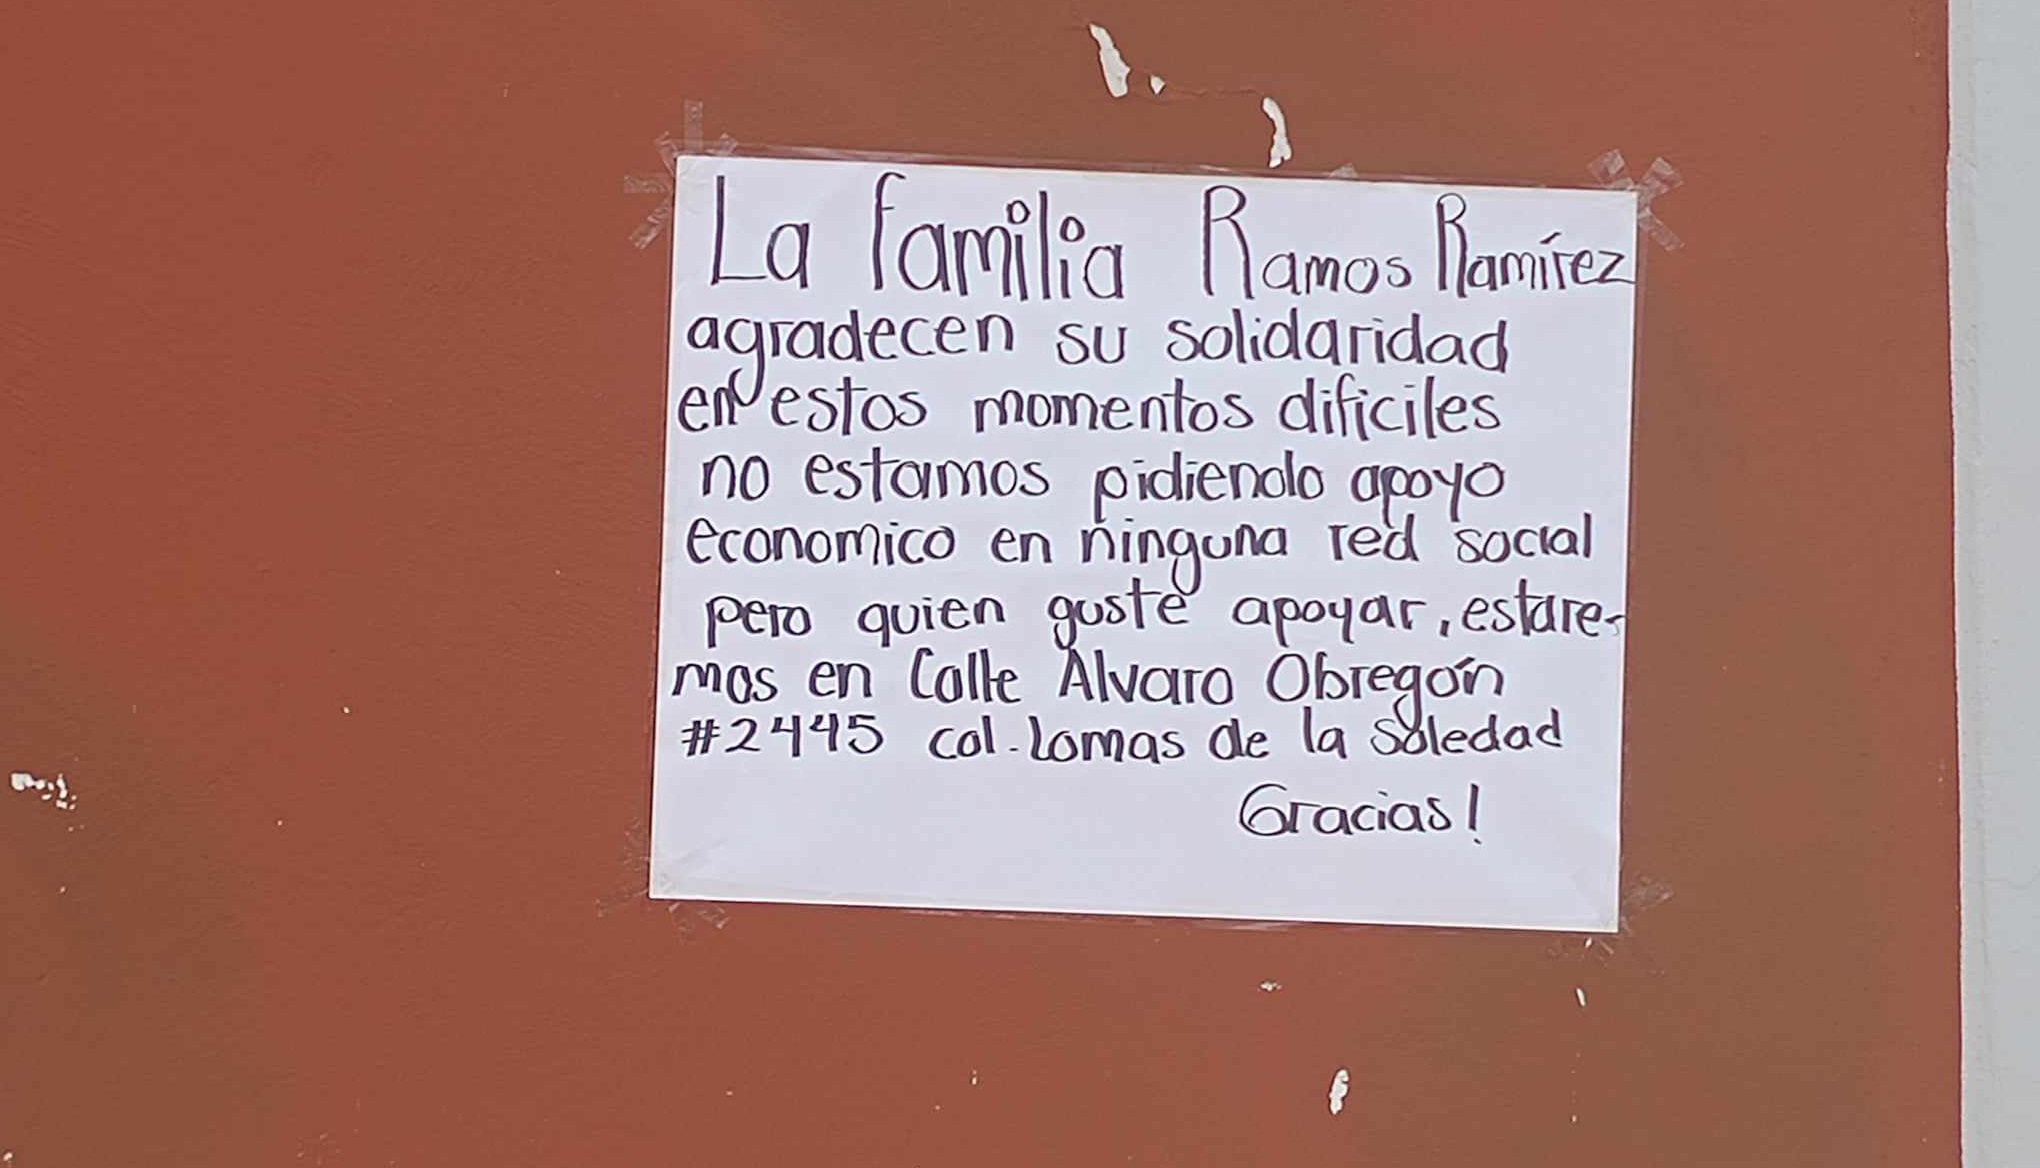 La familia Ramos Ramírez
agradecen su solidaridad
en estos momentos dificiles
no estamos pidiendo apoyo
economico en ninguna red social
pero quien guste apoyar, estare-
mos en Calle Alvaro Obregón
#2445 col. lomas de la soledad
Gracias!